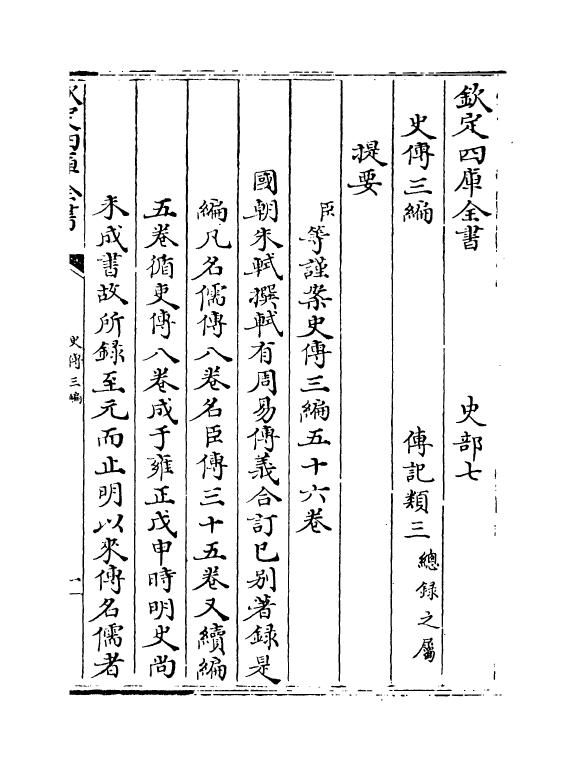 欽定四庫全書　史部七
史傳三編　傳記類三總錄之屬
提要
臣等謹案史傳三編五十六卷
國朝朱軾撰軾有周易傳義合訂已别著録是
編凡名儒傳八卷名臣傳三十五卷又續編
五卷循吏傳八卷成于雍正戊申時明史尚
未成書故所錄至元而止明以來傳名儒者
欽定四庫全書
史傳三編
一